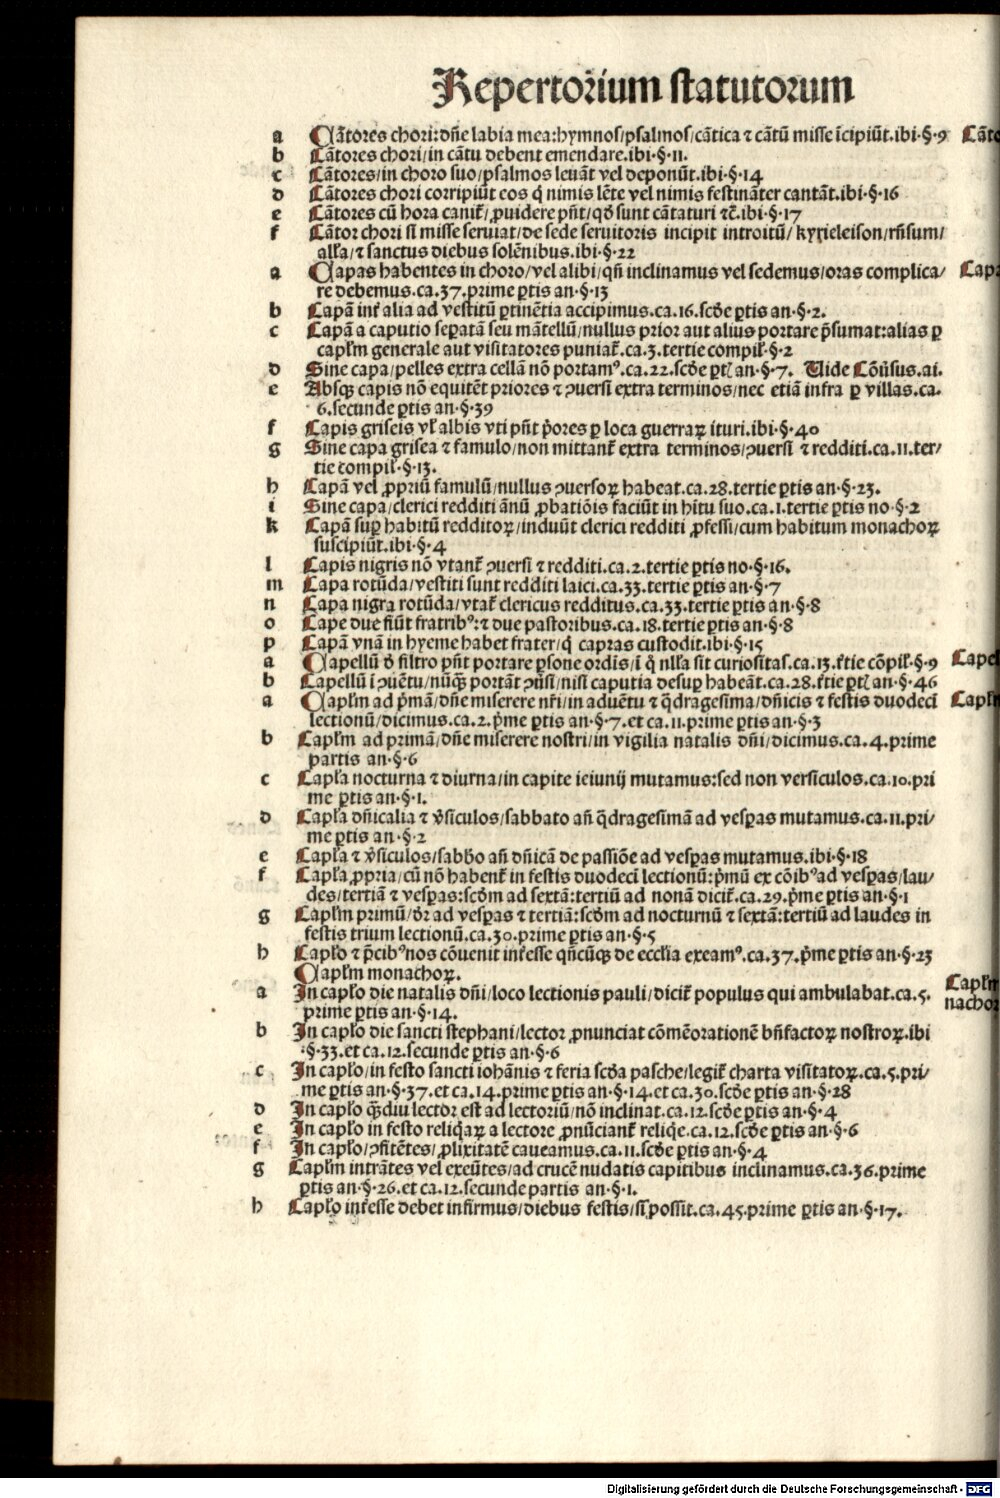 Repertorium statutorum
a Cãtores chori: dñe labia mea: hymnos/psalmos/cãtica ⁊ cãtũ misse ĩcipiũt. ibi·§·9 Cãto
b Cãtores chori/in cãtu debent emendare. ibi·§·11.
c Cãtores/in choro suo/psalmos leuãt vel deponũt. ibi·§·14
d Cãtores chori corripiũt eos q̇ nimis lẽte vel nimis festinãter cantãt. ibi·§·16
e Cãtores cũ hora canit᷑/ ꝓuidere pñt/qđ sunt cãtaturi ⁊c̃. ibi·§·17
f Cãtor chori si misse seruiat/de sede seruitoris incipit introitũ/ kyrieleison/rñsum/
alła/⁊ sanctus diebus solẽnibus. ibi·§·22
a Capas habentes in choro/vel alibi/qñ inclinamus vel sedemus/oras complica/ Capa
re debemus. ca. 37. prime ꝑtis an·§·13
b Capã int᷑ alia ad vestitũ ꝑtinẽtia accipimus. ca. 16. scđe ꝑtis an·§·2.
c Capã a caputio seꝑatã seu mãtellũ/nullus prior aut alius portare p̃sumat: alias ꝑ
capłm generale aut visitatores puniat᷑. ca. 3. tertie compil᷑·§·2
d Sine capa/pelles extra cellã nõ portamꝰ. ca. 22. scđe ꝑtꝭ an·§·7. Uide Cõũsus. ai.
e Absqꝫ capis nõ equitẽt priores ⁊ ꝯuersi extra terminos/nec etiã infra ꝑ villas. ca.
6. secunde ꝑtis an·§·39
f Capis griseis vł albis vti pñt p̃ores ꝑ loca guerraꝝ ituri. ibi·§·40
g Sine capa grisea ⁊ famulo/non mittant᷑ extra terminos/ꝯuersi ⁊ redditi. ca. 11. ter/
tie compil᷑·§·13.
h Capã vel ꝓpriũ famulũ/nullus ꝯuersoꝝ habeat. ca. 28. tertie ꝑtis an·§·23.
i Sine capa/clerici redditi ãnũ ꝓbatiõis faciũt in hĩtu suo. ca. 1. tertie ꝑtis no·§·2
k Capã suꝑ habitũ redditoꝝ/induũt clerici redditi ꝓfessi/cum habitum monachoꝝ
suscipiũt. ibi·§·4
l Capis nigris nõ vtant᷑ ꝯuersi ⁊ redditi. ca. 2. tertie ꝑtis no·§·16.
m Capa rotũda/vestiti sunt redditi laici. ca. 33. tertie ꝑtis an·§·7
n Capa nigra rotũda/vtat᷑ clericus redditus. ca. 33. tertie ꝑtis an·§·8
o Cape due fiũt fratribꝰ: ⁊ due pastoribus. ca. 18. tertie ꝑtis an·§·8
p Capã vnã in hyeme habet frater/q̇ capras custodit. ibi·§·15
a Capellũ đ filtro pñt portare ꝑsone ordĩs/ĩ q̇ nłła sit curiosĩtas. ca. 13. t᷑tie cõpil᷑·§·9 Capel
b Capellũ ĩ ꝯuẽtu/nũqꝫ portãt ꝯũsi/nisi caputia desuꝑ habeãt. ca. 28. t᷑tie ꝑtꝭ an·§·46
a Capłm ad p̃mã/dñe miserere nr̃i/in aduẽtu ⁊ q̃dragesima/dñicis ⁊ festis duodecĩ Capłm
lectionũ/dicimus. ca. 2. p̃me ꝑtis an·§·7. et ca. 11. prime ꝑtis an·§·3
b Capłm ad primã/dñe miserere nostri/in vigilia natalis dñi/dicimus. ca. 4. prime
partis an·§·6
c Capła nocturna ⁊ diurna/in capite ieiunij mutamus: sed non versiculos. ca. 10. pri
me ꝑtis an·§·1.
d Capła dñicalia ⁊ ṽsiculos/sabbato añ q̃dragesimã ad vesꝑas mutamus. ca. 11. pri/
me ꝑtis an·§·2
e Capła ⁊ ṽsiculos/sabbo añ dñicã de passiõe ad vesꝑas mutamus. ibi·§·18
f Capła ꝓpria/cũ nõ habent᷑ in festis duodecĩ lectionũ: p̃mũ ex cõibꝰ ad vesꝑas/lau/
des/tertiã ⁊ vesꝑas: scđm ad sextã: tertiũ ad nonã dicit᷑. ca. 29. p̃me ꝑtis an·§·1
g Capłm primũ/đr ad vesꝑas ⁊ tertiã: scđm ad nocturnũ ⁊ sextã: tertiũ ad laudes in
festis trium lectionũ. ca. 30. prime ꝑtis an·§·5
h Capło ⁊ p̃cibꝰ nos cõuenit int᷑esse qñcũqꝫ de ecclĩa exeamꝰ. ca. 37. p̃me ꝑtis an·§·23
Capłm monachoꝝ. Capłm
a In capło die natalis dñi/loco lectionis pauli/dicit᷑ populus qui ambulabat. ca. 5. nachoꝝ
prime ꝑtis an·§·14.
b In capło die sancti stephani/lector ꝓnunciat cõmẽorationẽ bñfactoꝝ nostroꝝ. ibi
·§·33. et ca. 12. secunde ꝑtis an·§·6
c In capło/in festo sancti iohãnis ⁊ feria scđa pasche/legit᷑ charta visitatoꝝ. ca. 5. pri/
me ꝑtis an·§·37. et ca. 14. prime ꝑtis an·§·14. et ca. 30. scđe ꝑtis an·§·28
d In capło q̃ꝫdiu lector est ad lectoriũ/nõ inclinat. ca. 12. scđe ꝑtis an·§·4
e In capło in festo reliq̃aꝝ a lectore ꝓnũciant᷑ reliq̃e. ca. 12. scđe ꝑtis an·§·6
f In capło/ꝯfitẽtes/ꝓlixitatẽ caueamus. ca. 11. scđe ꝑtis an·§·4
g Capłm intrãtes vel exeũtes/ad crucẽ nudatis capitibus inclinamus. ca. 36. prime
ꝑtis an·§·26. et ca. 12. secunde partis an·§·1.
h Capło int᷑esse debet infirmus/diebus festis/si possit. ca. 45. prime ꝑtis an·§·17.
Digitalisierung gefördert durch die Deutsche Forschungsgemeinschaft - DFG